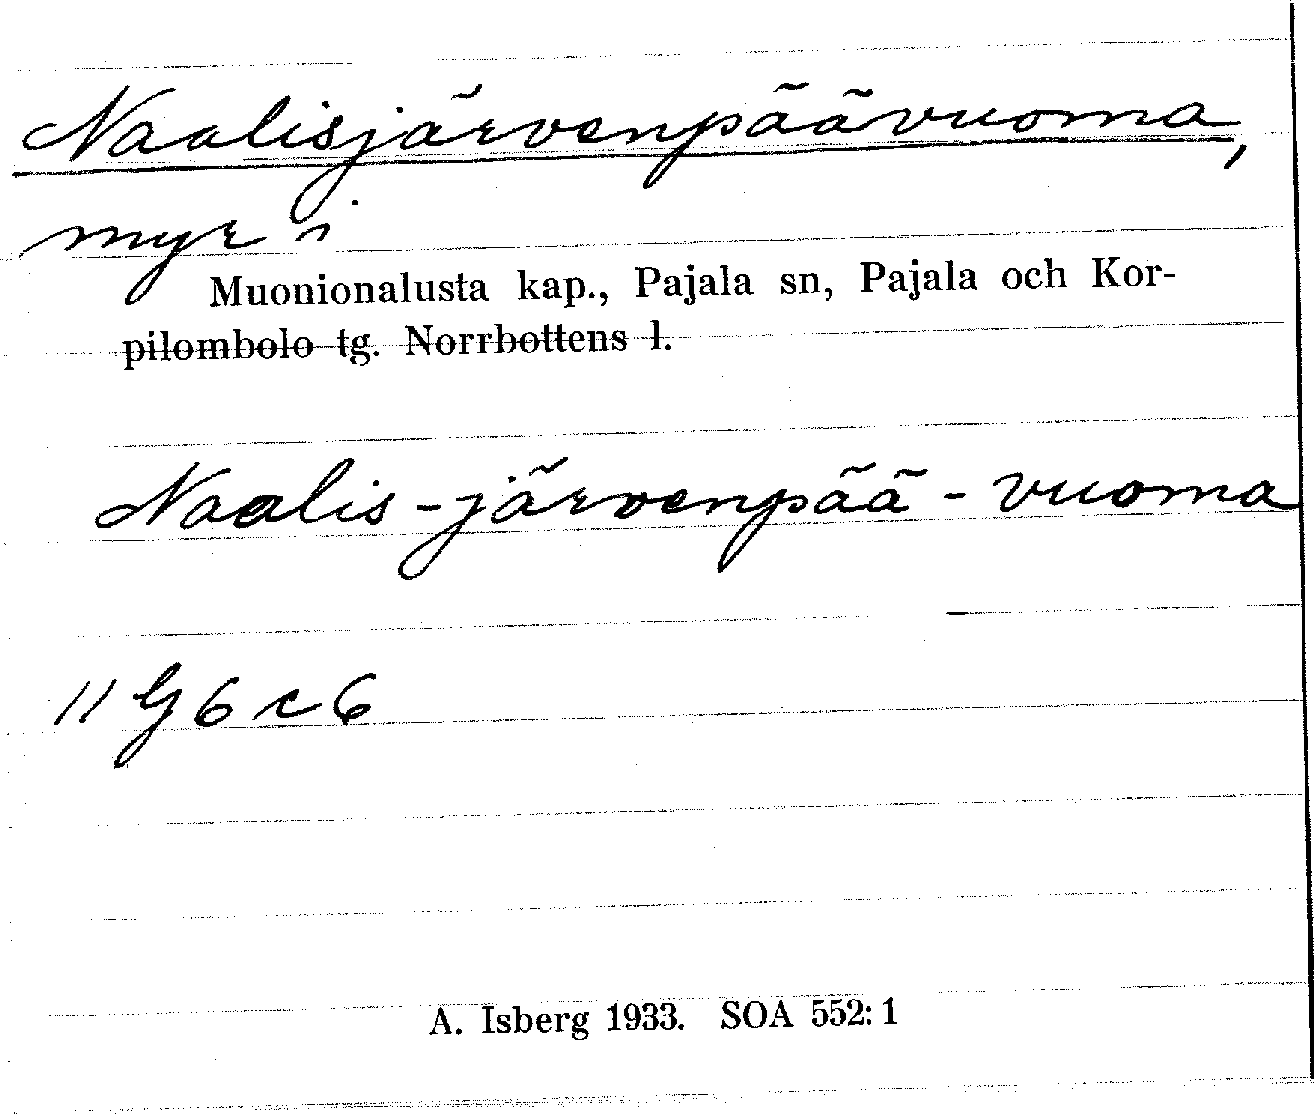 Naalisjärvenpäävuoma,
myr i
Muonionalusta kap., Pajala sn, Pajala och Kor-
pilombolo tg. Norrbottens l.
Naalis-järvenpää-vuoma
11 G 6 c 6
A. Isberg 1933. SOA 552:1